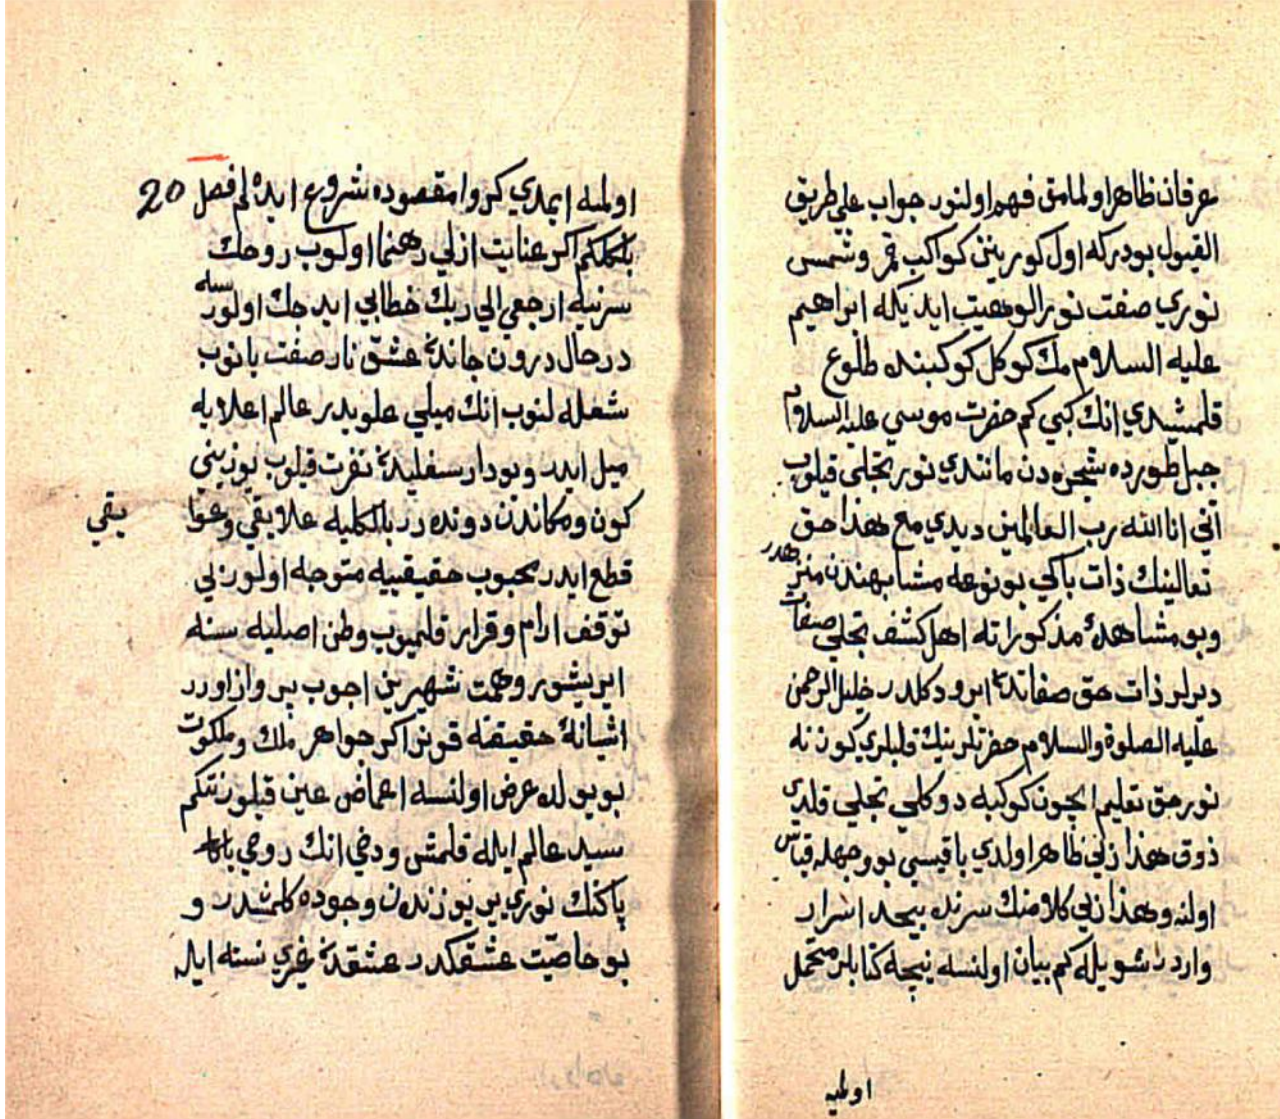 عرفان ظاهر اولمامق فهم اولنور جواب علي طريق
القبول بودركه اول كورينن كواكب قمر وشمس
نوري صفت نور الوهيت ايديكه ابراهيم
عليه السلام مك كوكل كوكبنده طلوع
قلمشيدي انك كبي كم حضرت موسي عليه السلام
جبل طورده شجره دن مانندي نور تجلي قيلوب
اني انا الله رب العالمين ديدي مع هذا حق
تعالينك ذات باكي بو نوعه مشابهتدن منزهدر
وبو مشاهدۀ مذكوراته اهل كشف تجلي صفات
ديرلر ذات حق صفاتدن ايرو دكلدر خليل الرحمن
عليه الصلوة والسلام حضرتلرينك قلبلري كوزنه
نور حق تعليم ايچون كوكبه دوكلي تجلي قلدي
ذوق هذا زلي ظاهر اولدي باقيسي بو وجهله قياس
اولنه وهذا زلي كلامنك سرنده بيحد اسرار
واردر شويله كم بيان اولنسه نيچه كتابلر متحمل
اولميه
اولمه ايمدي كرو مقصوده شروع ايدهلم فصل 20
بلكلكم اكر عنايت ازلي رهنما اولوب روحك
سرنيه ارجعي الي ربك خطابي ايدجك اولورسه
درحال درون جاندۀ عشق نار صفت يانوب
شعله لنوب انك ميلي علويدر عالم اعلايه
ميل ايدر وبو دار سفليدن نفرت قيلوب يوزيني
كون ومكاندن دوندورر بالكليه علايقي وعوايقي
قطع ايدر محبوب حقيقييه متوجه اولور بي
توقف ارام وقرار قلميوب وطن اصليه سنه
ايريشور وهمت شهپرين اچوب پرواز اورر
اشيانۀ حقيقته قونر اكر جواهر ملك وملكوت
بو يولده عرض اولنسه اغماض عين قيلور نتكم
سيد عالم ايله قلمش ودخي انك روحي
پاكنك نوري بر يوزندن وجوده كلمشدر و
بو خاصيت عشقكدر عشقدن غيري نسنه ايله